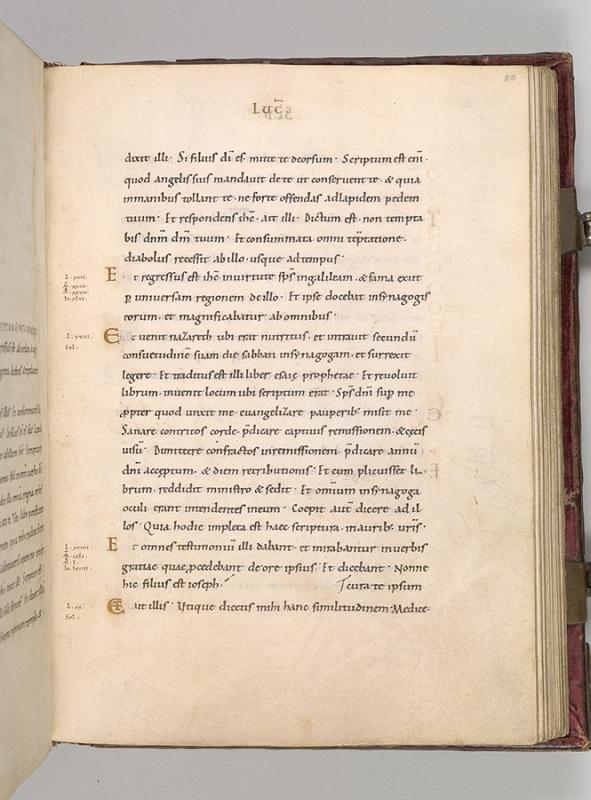 83
LUC̄
dixit illi · Si filius dī es mitte te deorsum · Scriptum est eni̅ ·
quod angelis suis mandavit de te ut conservent te · & quia
in manibus tollant te · ne forte offendas ad lapidem pedem
tuum · Et respondens ihc̅ · ait illi · Dictum est · non tempta
bis dnm̅ dm̅ tuum · Et consummata omni te̅ptatione ·
diabolus recessit ab illo · usque ad tempus ·
L · xvii · E t regressus est ihc̅ in virtute sps̅ in galileam · & fama exiit
p̲ universam regionem de illo · Et ipse docebat in synagogis
eorum · et magnificabatur ab omnibus ·
L · xviii · E t venit nazareth · ubi erat nutritus · et intravit secundu̅
Sol · consuetudine̅ suam die sabbati in synagogam · et surrexit
legere · Et traditus est illi liber esaię prophetae · Et revolvit
librum · invenit locum ubi scriptum erat · Sps̅ dni̅ sup̲ me
p̲pter quod unxit me · evangelizare pauperib; misit me ·
Sanare contritos corde · p̅dicare captivis remissionem · & cęcis
visu̅ · Dimittere confractos in remissionem · p̅dicare annu̅
dni̅ acceptum · & diem retributionis · Et cum plicuisset li
brum · reddidit ministro & sedit · Et omnium in synagoga
oculi erant intendentes in eum · Coepit aut̅ dicere ad il
los · Quia hodie impleta est haec scriptura in aurib; vr̅is ·
L · xviiii · E t omnes testimoniu̅ illi dabant · et mirabantur in verbis
gratiae quae p̲cedebant de ore ipsius · Et dicebant · Nonne
hic filius est ioseph · / cura te ipsum
L · xx · Et ait illis · Utique dicetis mihi hanc similitudinem · Medice ·
Sol ·